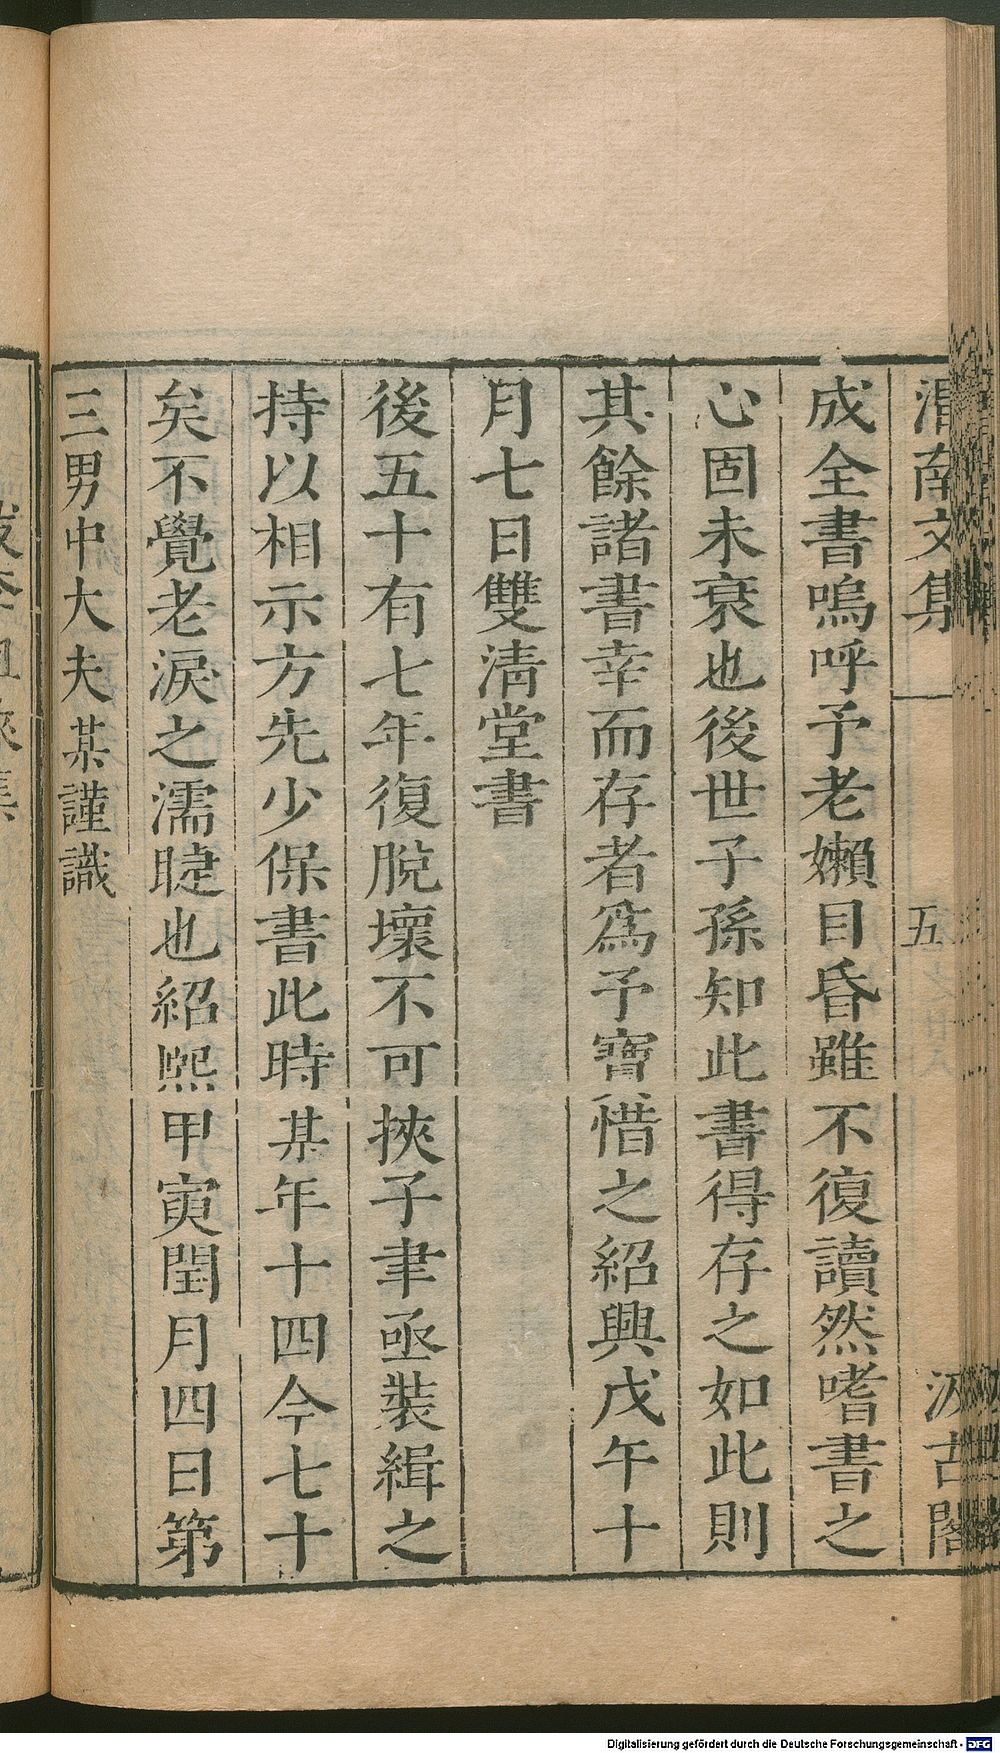 渭南文集
五
汲古閣
成全書嗚呼予老嬾目昏雖不復讀然嗜書之
心固未衰也後世子孫知此書得存之如此則
其餘諸書幸而存者爲予寶惜之紹興戊午十
月七日雙清堂書
後五十有七年復脫壞不可挾子聿亟裝緝之
持以相示方先少保書此時某年十四今七十
矣不覺老淚之濡睫也紹熙甲寅閏月四日第
三男中大夫某謹識
Digitalisierung gefördert durch die Deutsche Forschungsgemeinschaft - DFG